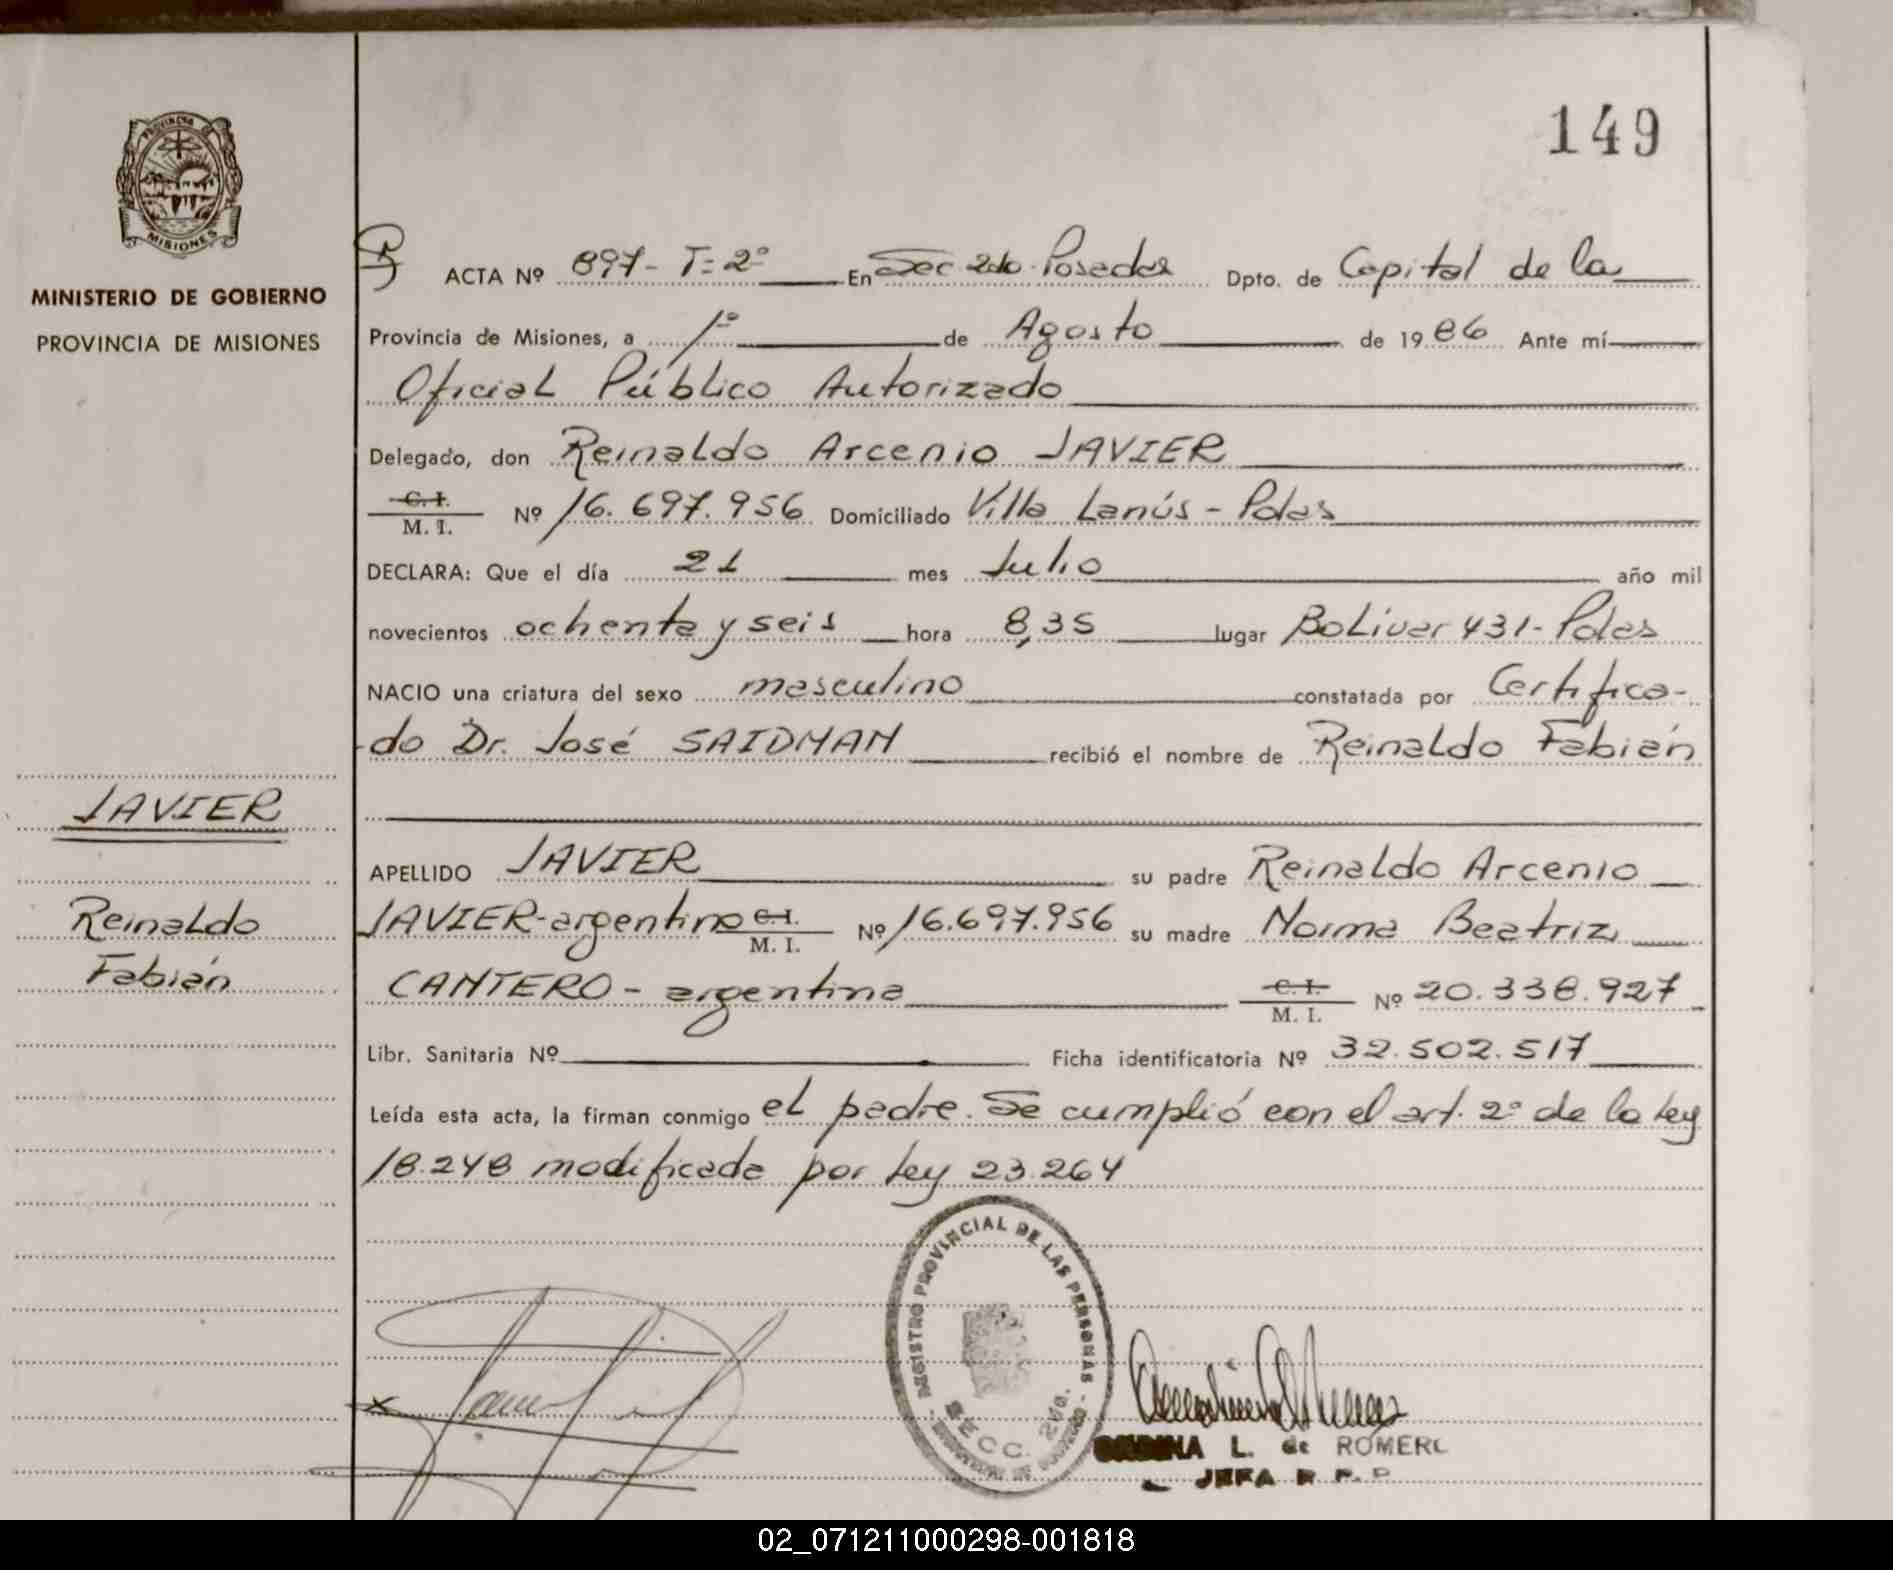 149
PROVINCIA DE
MISIONES
MINISTERIO DE GOBIERNO
PROVINCIA DE MISIONES
ACTA Nº 897- T=2º En Sec 2do. Posadas Dpto. de Capital de la
Provincia de Misiones, a 1º de Agosto de 1986 Ante mí
Oficial Público Autorizado
Delegado, don Reinaldo Arcenio JAVIER
C. I.
M. I. Nº 16.697.956 Domiciliado Villa Lanús - Pdas
DECLARA: Que el día 21 mes Julio año mil
novecientos ochenta y seis hora 8,35 lugar Bolivar 431- Pdas
NACIO una criatura del sexo masculino constatada por Certifica-
-do Dr. José SAIDMAN recibió el nombre de Reinaldo Fabián
JAVIER
Reinaldo
Fabián
APELLIDO JAVIER su padre Reinaldo Arcenio
JAVIER-argentino C. I. M. I. Nº 16.697.956 su madre Norma Beatriz
CANTERO - argentina C. I. M. I. Nº 20.338.927
Libr. Sanitaria Nº Ficha identificatoria Nº 32.502.517
Leída esta acta, la firman conmigo el padre. Se cumplió con el art. 2º de la Ley
18.248 modificada por Ley 23.264
REGISTRO PROVINCIAL DE LAS PERSONAS
SECC. 2da.
L. de ROMERO
JEFA R. P. P
02_071211000298-001818